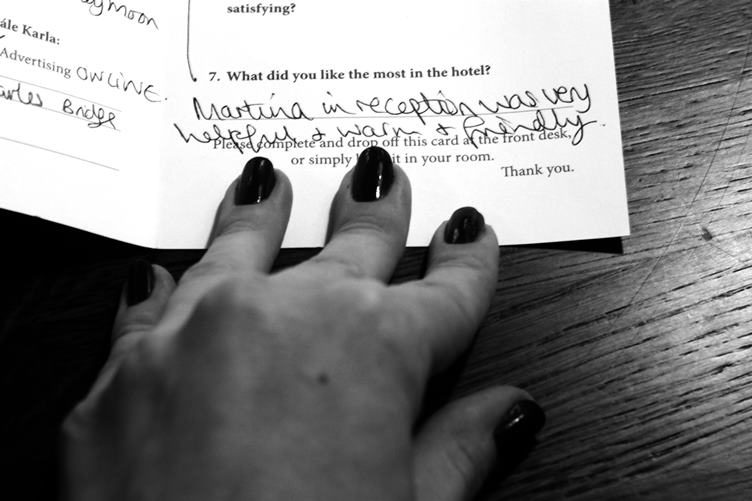 aymoon
ále Karla:
Advertising ONLINE.
arles Bridge
satisfying?
7. What did you like the most in the hotel?
Martina in reception was very
helpful & warm & friendly.
Please complete and drop off this card at the front desk,
or simply it in your room.
Thank you.